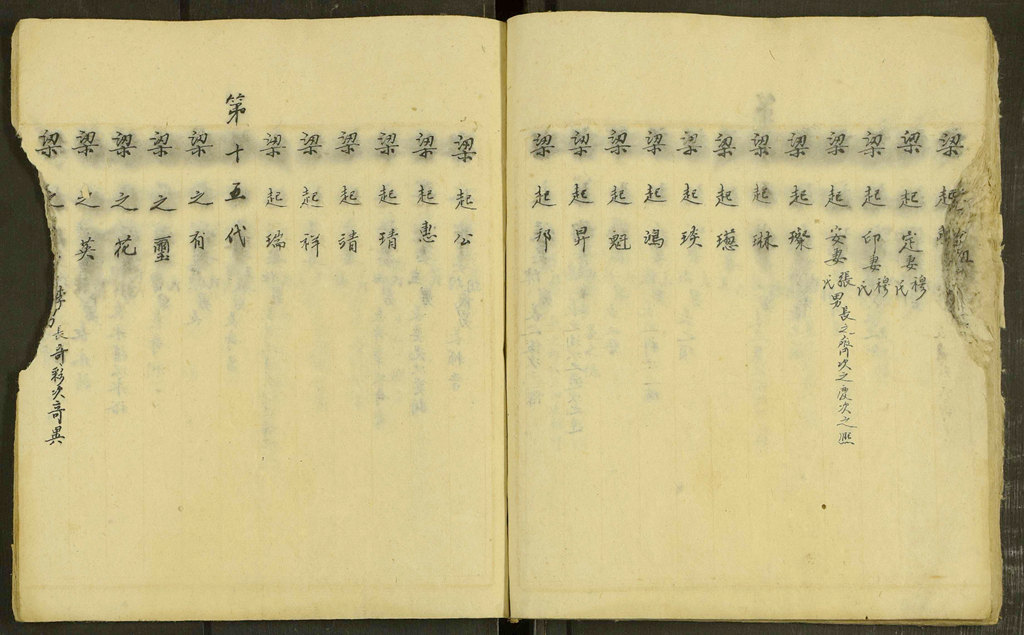 梁起
梁起定妻穆氏
梁起印妻穆氏
梁起安妻張氏男長之齊次之慶次之熙
梁起璨
梁起琳
梁起璁
梁起瑛
梁起鴻
梁起魁
梁起昇
梁起邦
梁起公
梁起惠
梁起琦
梁起靖
梁起祥
梁起瑞
第十五代
梁之有
梁之璽
梁之花
梁之英
梁之 李 男長奇彩次奇異